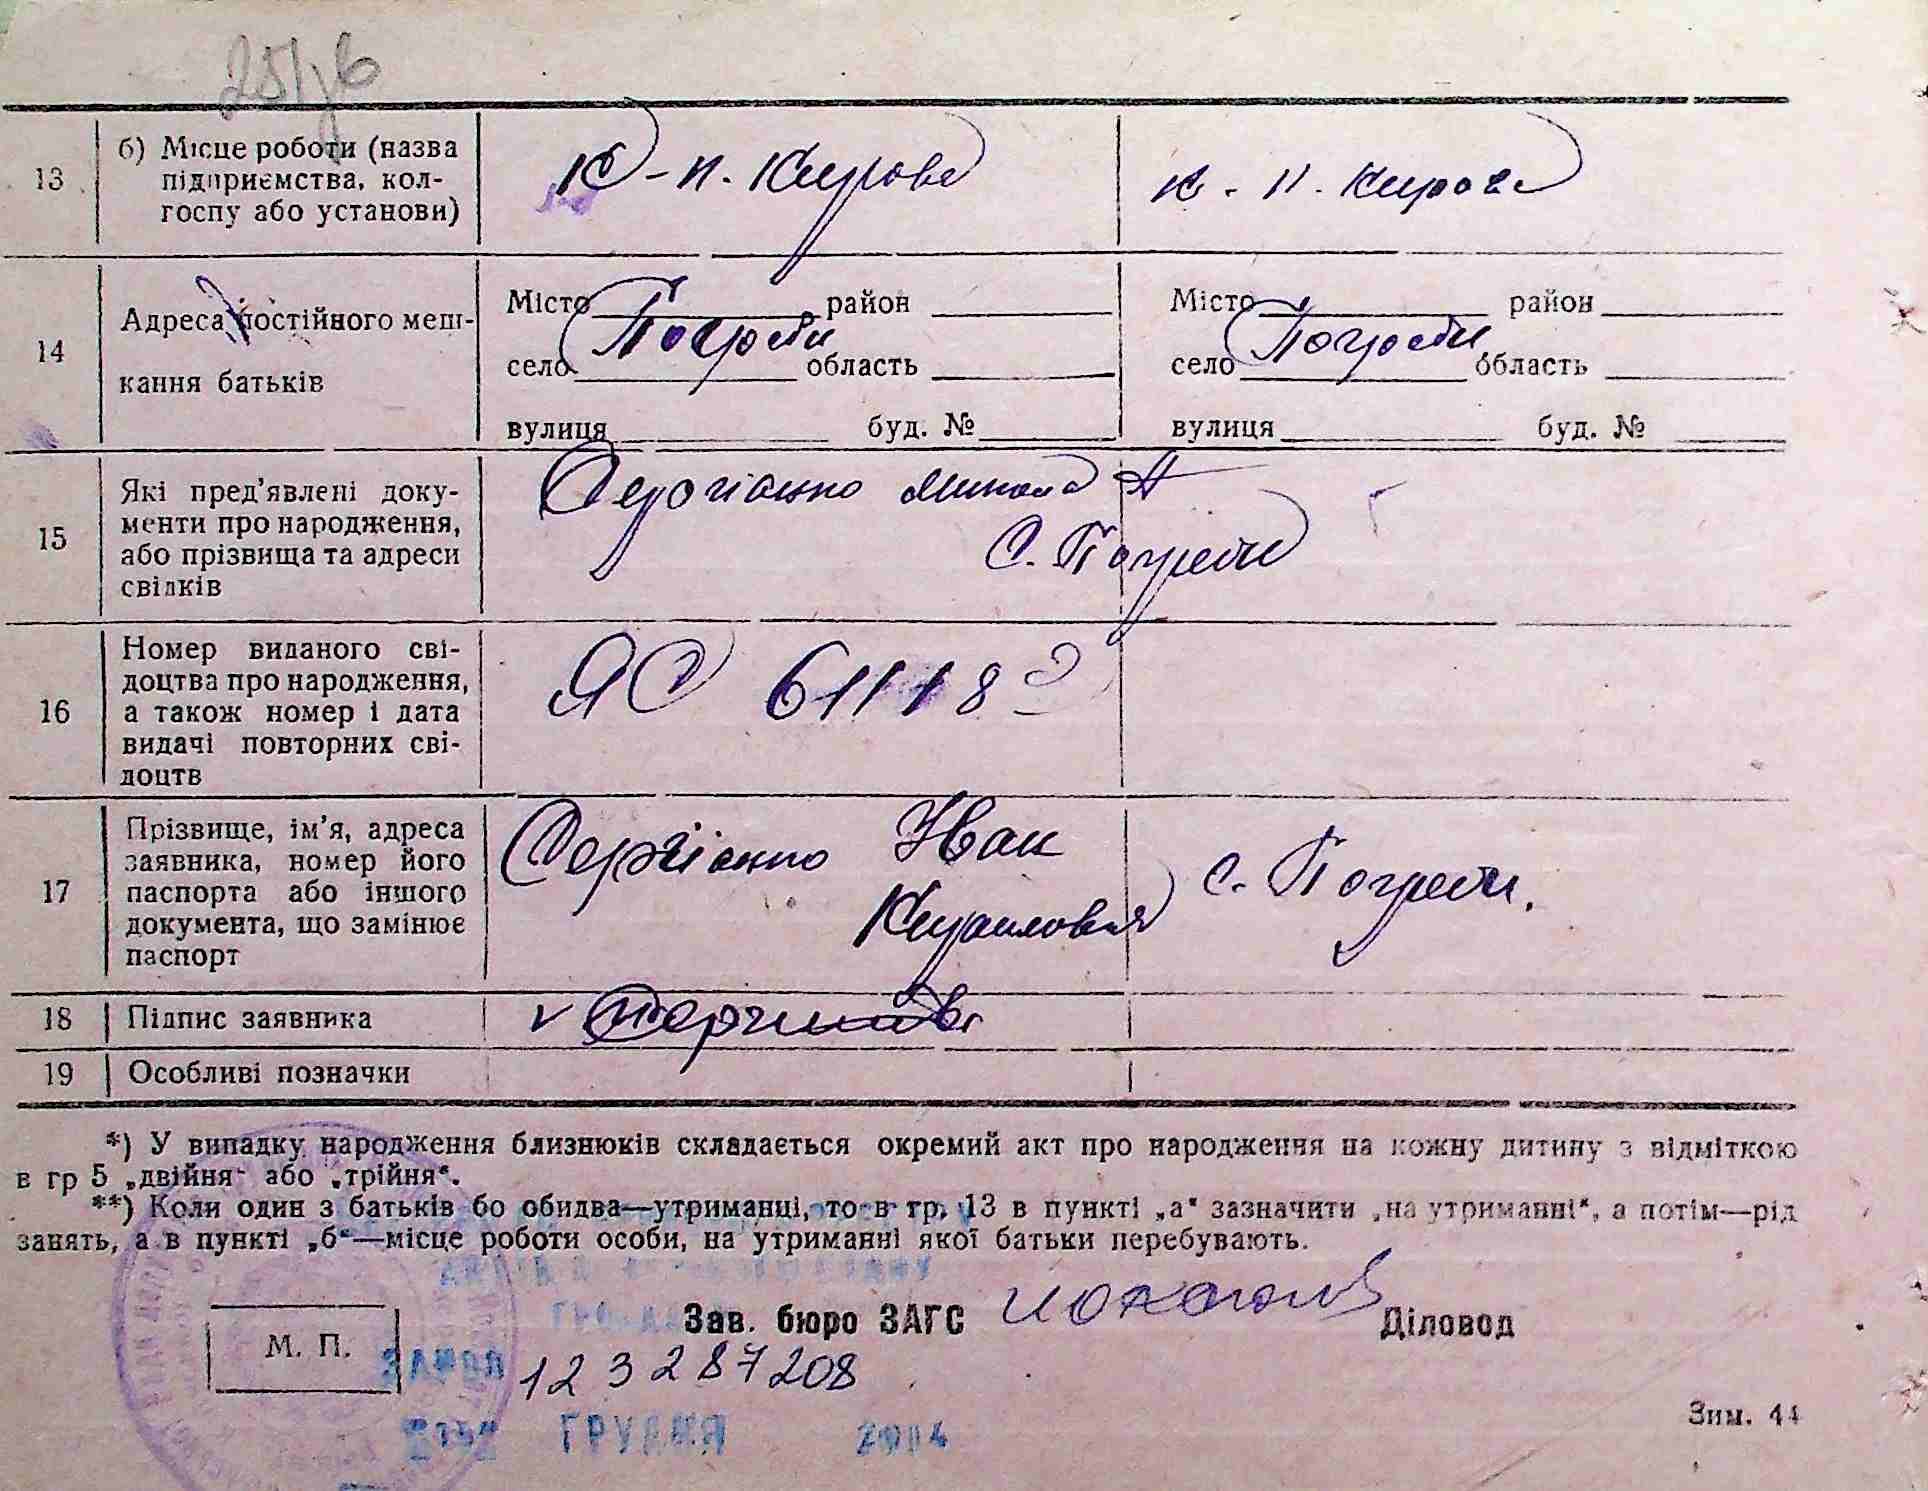 13 б) Місце роботи (назва підприємства, колгоспу або установи)
К-п. Кирова
к-п. Кирова
14 Адреса постійного мешкання батьків
Місто район
село Погреби область
вулиця буд. №
Місто район
село Погреби область
вулиця буд. №
15 Які пред'явлені документи про народження, або прізвища та адреси свідків
Сергієнко Микола А
С. Погреби
16 Номер виданого свідоцтва про народження, а також номер і дата видачі повторних свідоцтв
ЯС 61118
17 Прізвище, ім'я, адреса заявника, номер його паспорта або іншого документа, що замінює паспорт
Сергієнко Іван
с. Погреби.
18 Підпис заявника
19 Особливі позначки
*) У випадку народження близнюків складається окремий акт про народження на кожну дитину з відміткою
в гр 5 „двійня" або „трійня".
**) Коли один з батьків бо обидва—утриманці, то в гр. 13 в пункті „а" зазначити „на утриманні", а потім—рід
занять, а в пункті „б"—місце роботи особи, на утриманні якої батьки перебувають.
Зав. бюро ЗАГС Діловод
М. П.
123287208
ГРУДНЯ 2004
Зим. 44